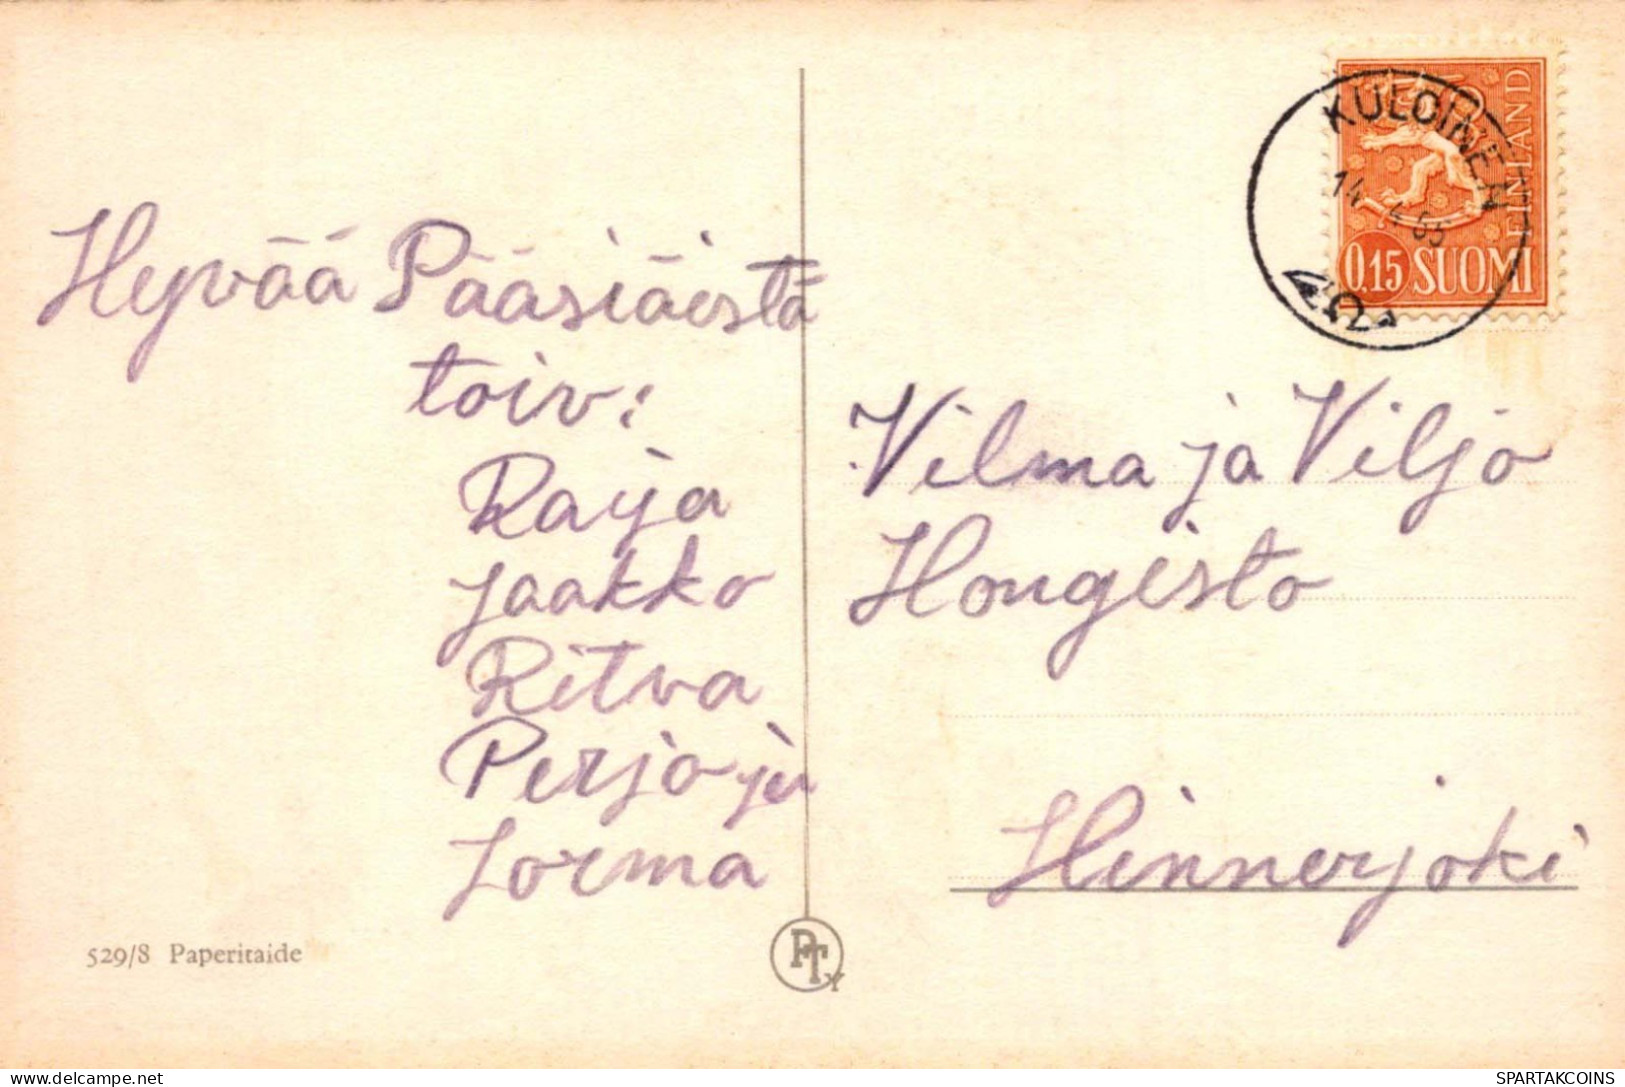 Hyvää Pääsiäistä
toiv:
Raija
Jaakko
Ritva
Perjo ja
Jorma
529/8 Paperitaide
PTY
KULOINEN
14.4.65
FINLAND
0,15 SUOMI
Vilma ja Viljo
Hongisto
Hinnerjoki
delcampe.net
SPARTAKCOINS